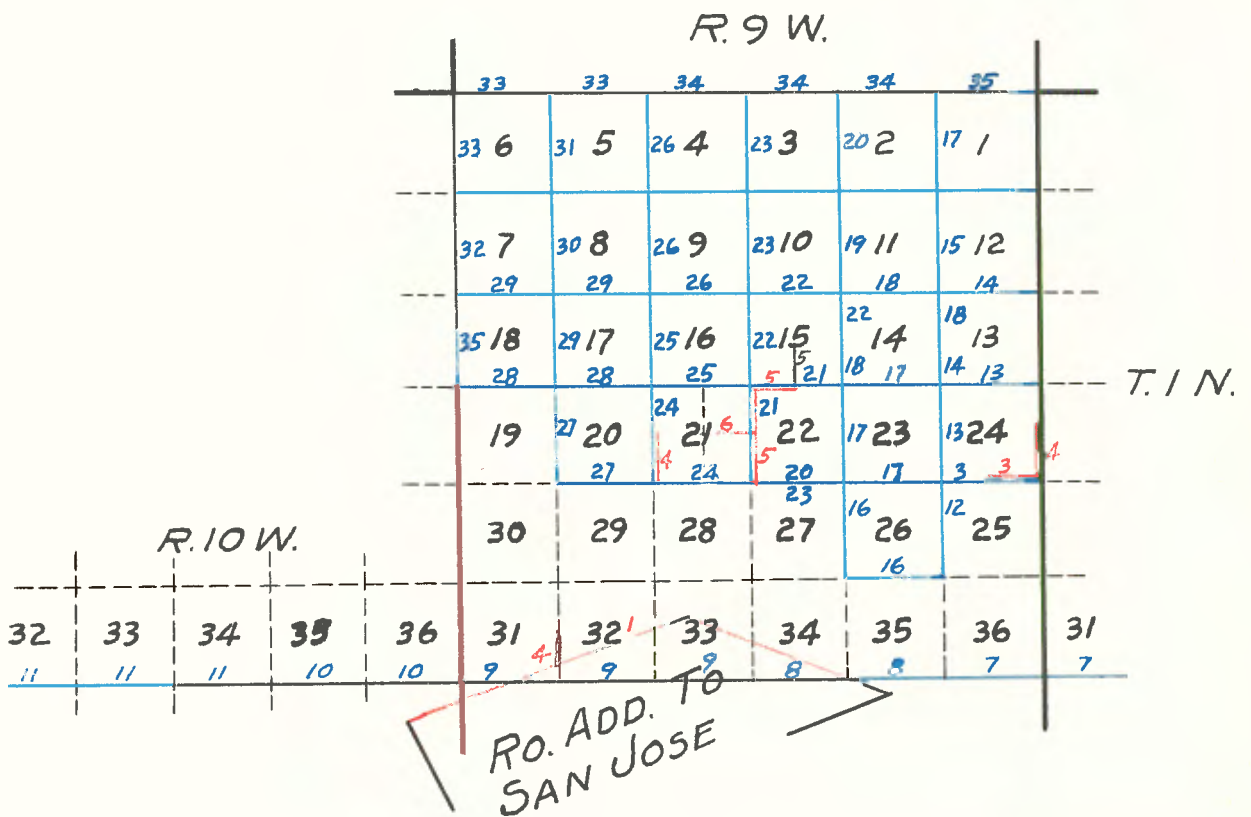 R. 9 W.
33 33 34 34 34 35
33 6 31 5 26 4 23 3 20 2 17 1
32 7 30 8 26 9 23 10 19 11 15 12
29 29 26 22 18 14
22 18
35 18 29 17 25 16 22 15 14 13
5
28 28 25 5 21 18 17 14 13
T. 1 N.
24 21
19 27 20 21 6 22 17 23 13 24
4
27 4 24 5 20 17 3 3
23
R. 10 W.
30 29 28 27 16 26 12 25
16
32 33 34 35 36 31 32 1 33 34 35 36 31
4
11 11 11 10 10 9 9 9 8 8 7 7
RO. ADD. TO
SAN JOSE